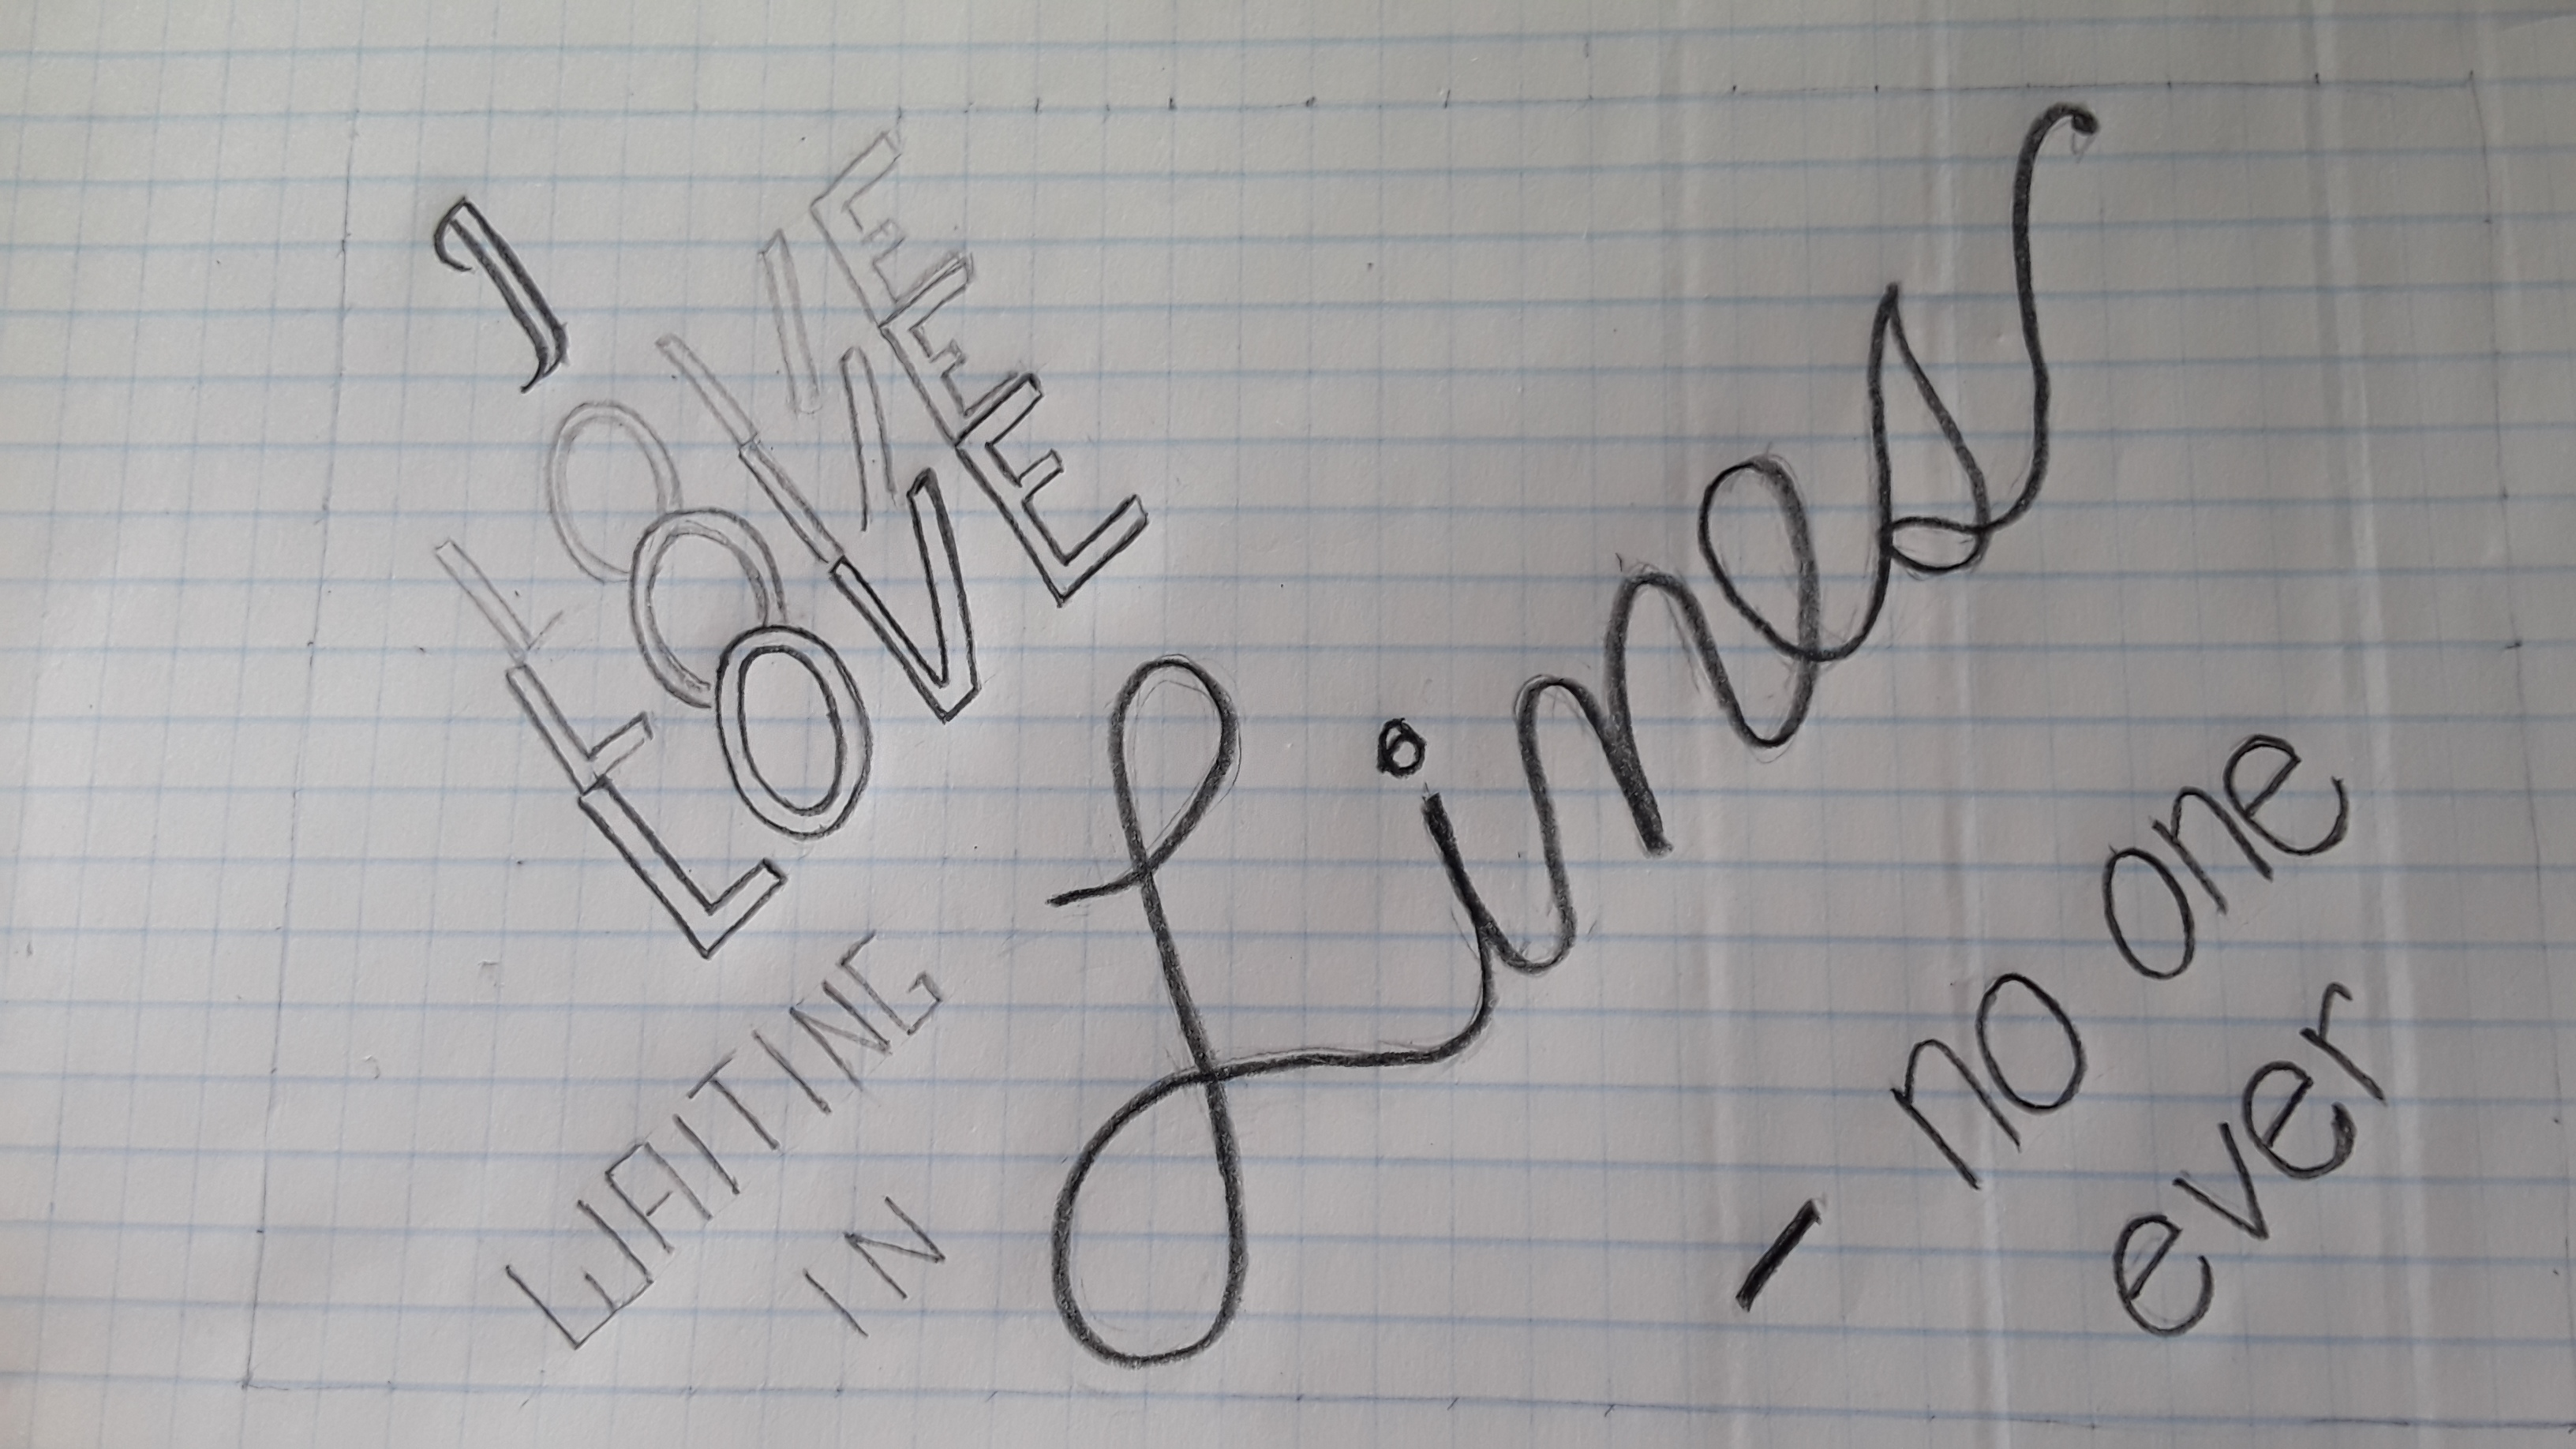 I
LOVE
LOVE
LOVE
WAITING
IN
Lines
- no one
ever